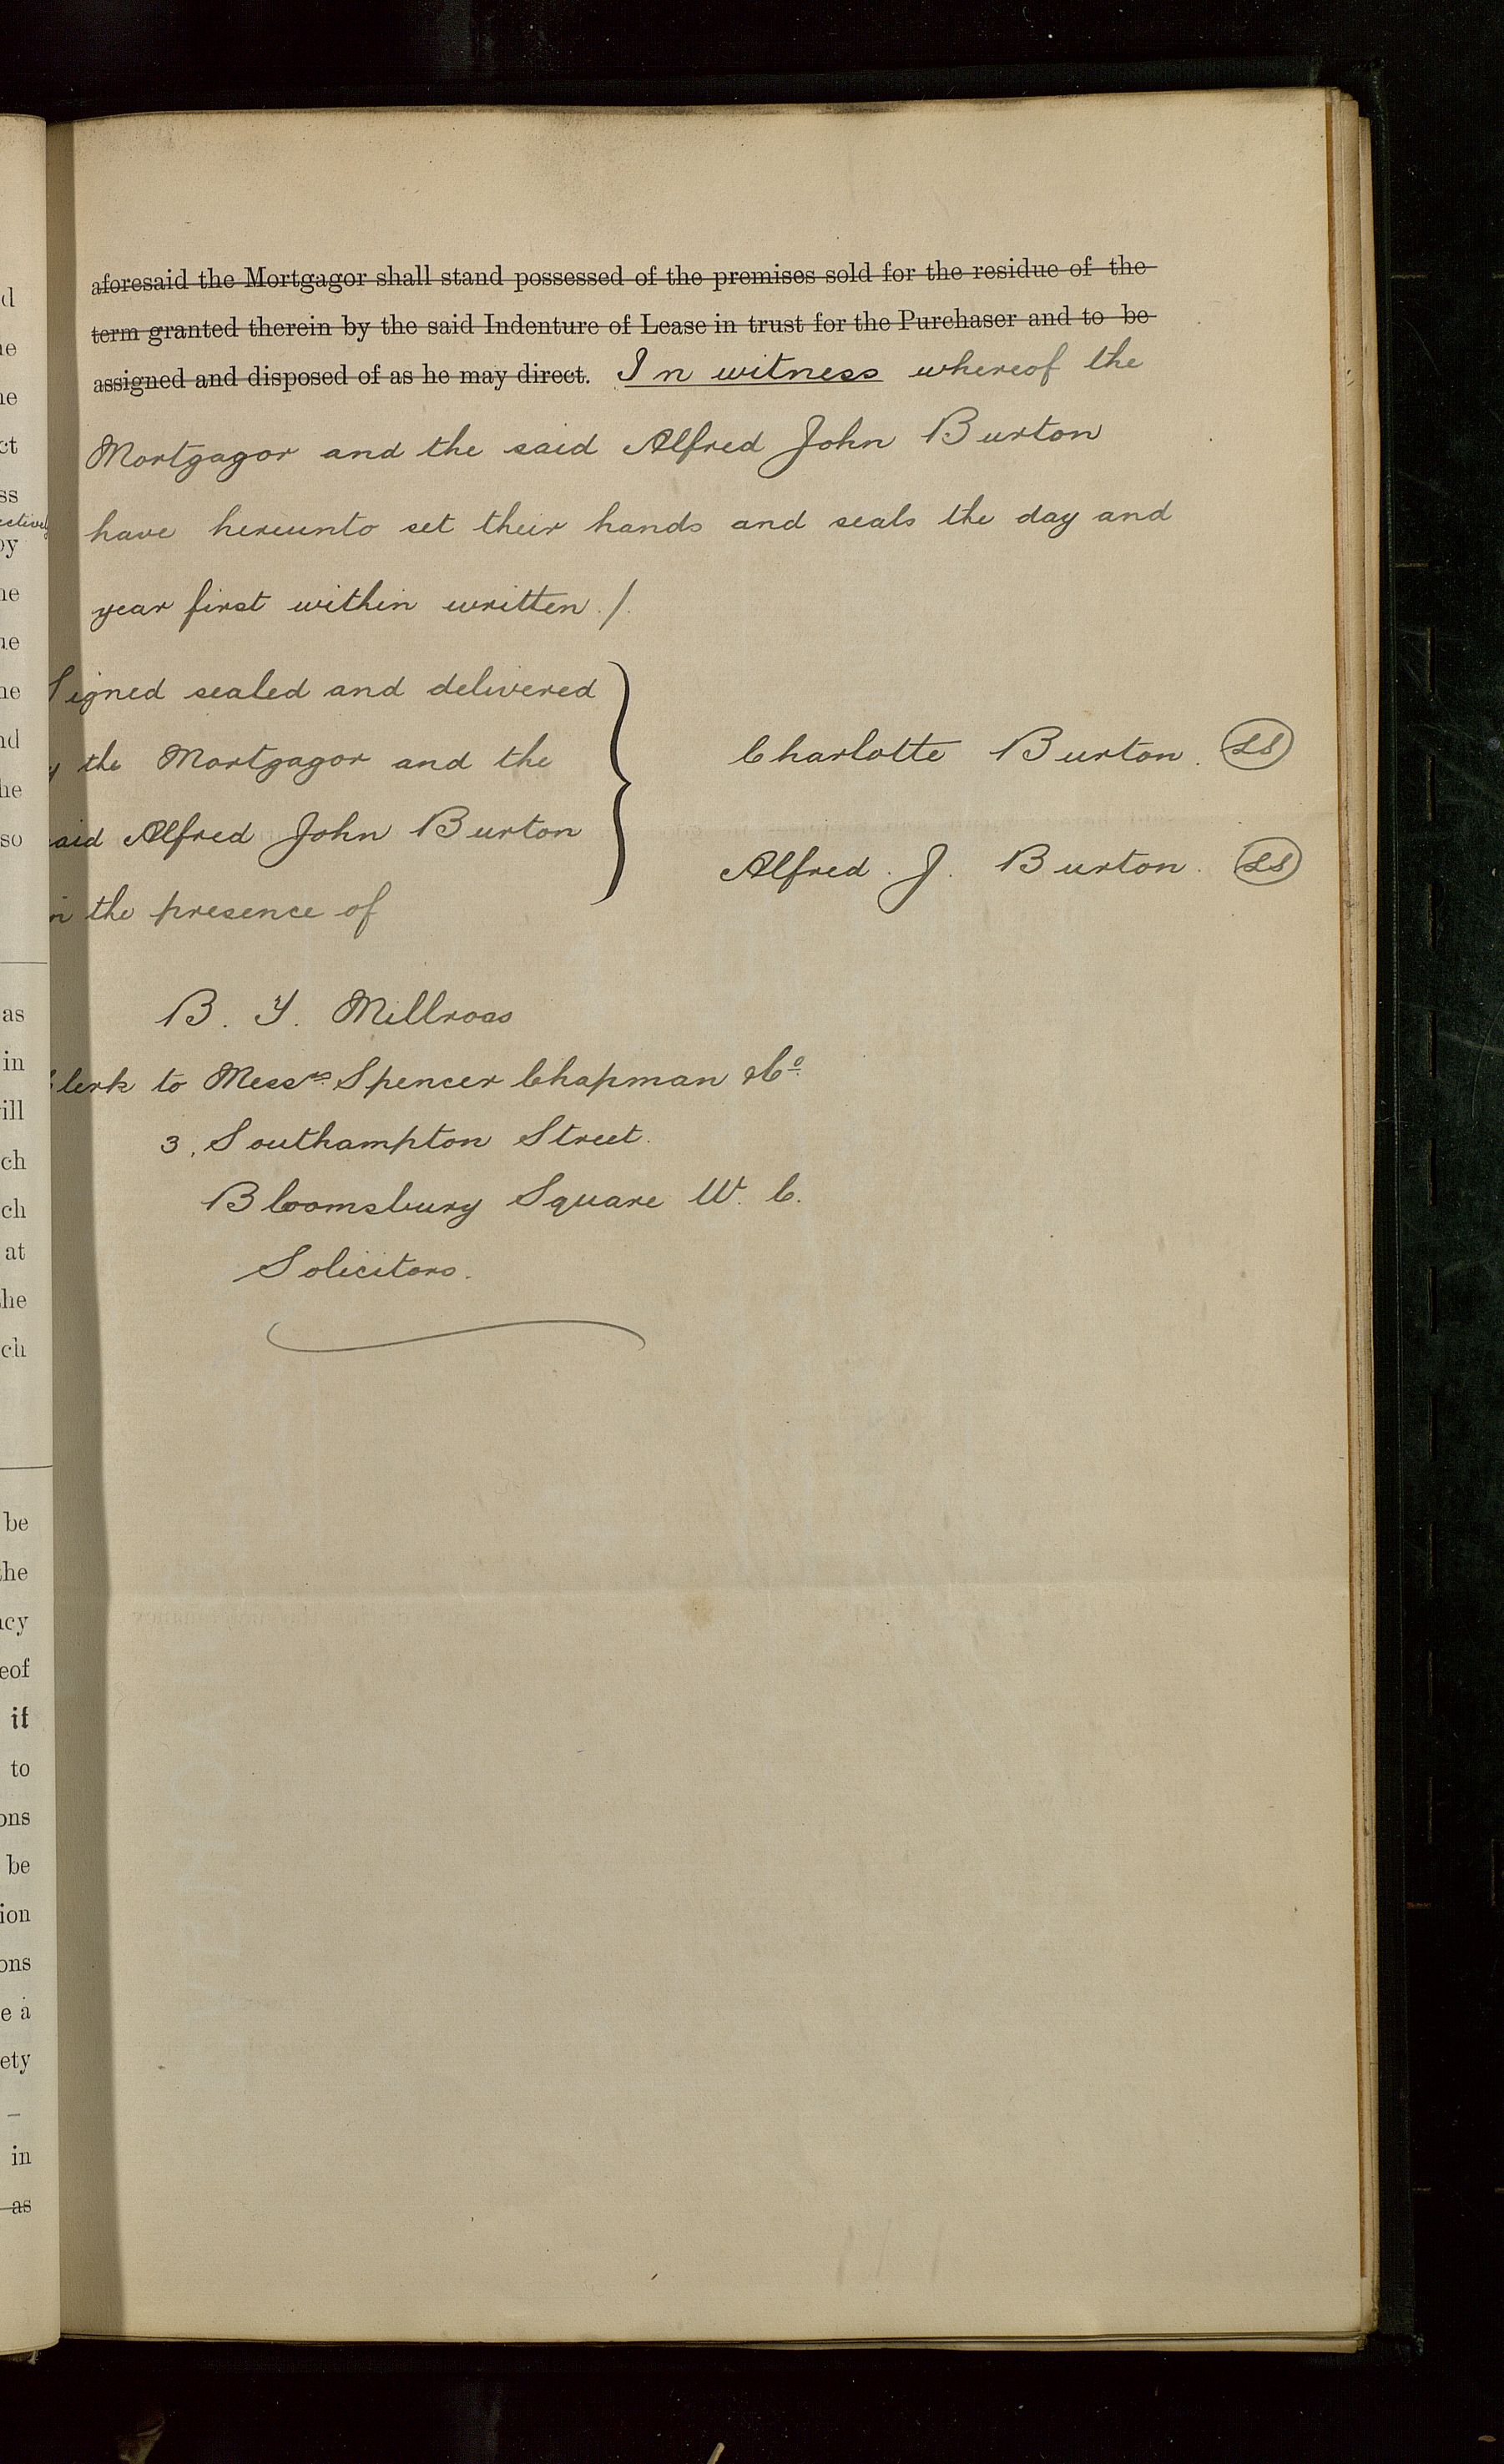 aforesaid the Mortgagor shall stand possessed of the premises sold for the residue of the
term granted therein by the said Indenture of Lease in trust for the Purchaser and to be
assigned and disposed of as he may direct. In witness whereof the
Mortgagor and the said Alfred John Burton
have hereunto set their hands and seals the day and
year first within written /.
Signed sealed and delivered
y the Mortgagor and the
aid Alfred John Burton
n the presence of
Charlotte Burton. LS
Alfred. J. Burton. LS
B. Y. Millross
Clerk to Messrs Spencer Chapman & Co.
3, Southampton Street.
Bloomsbury Square W. C.
Solicitors.